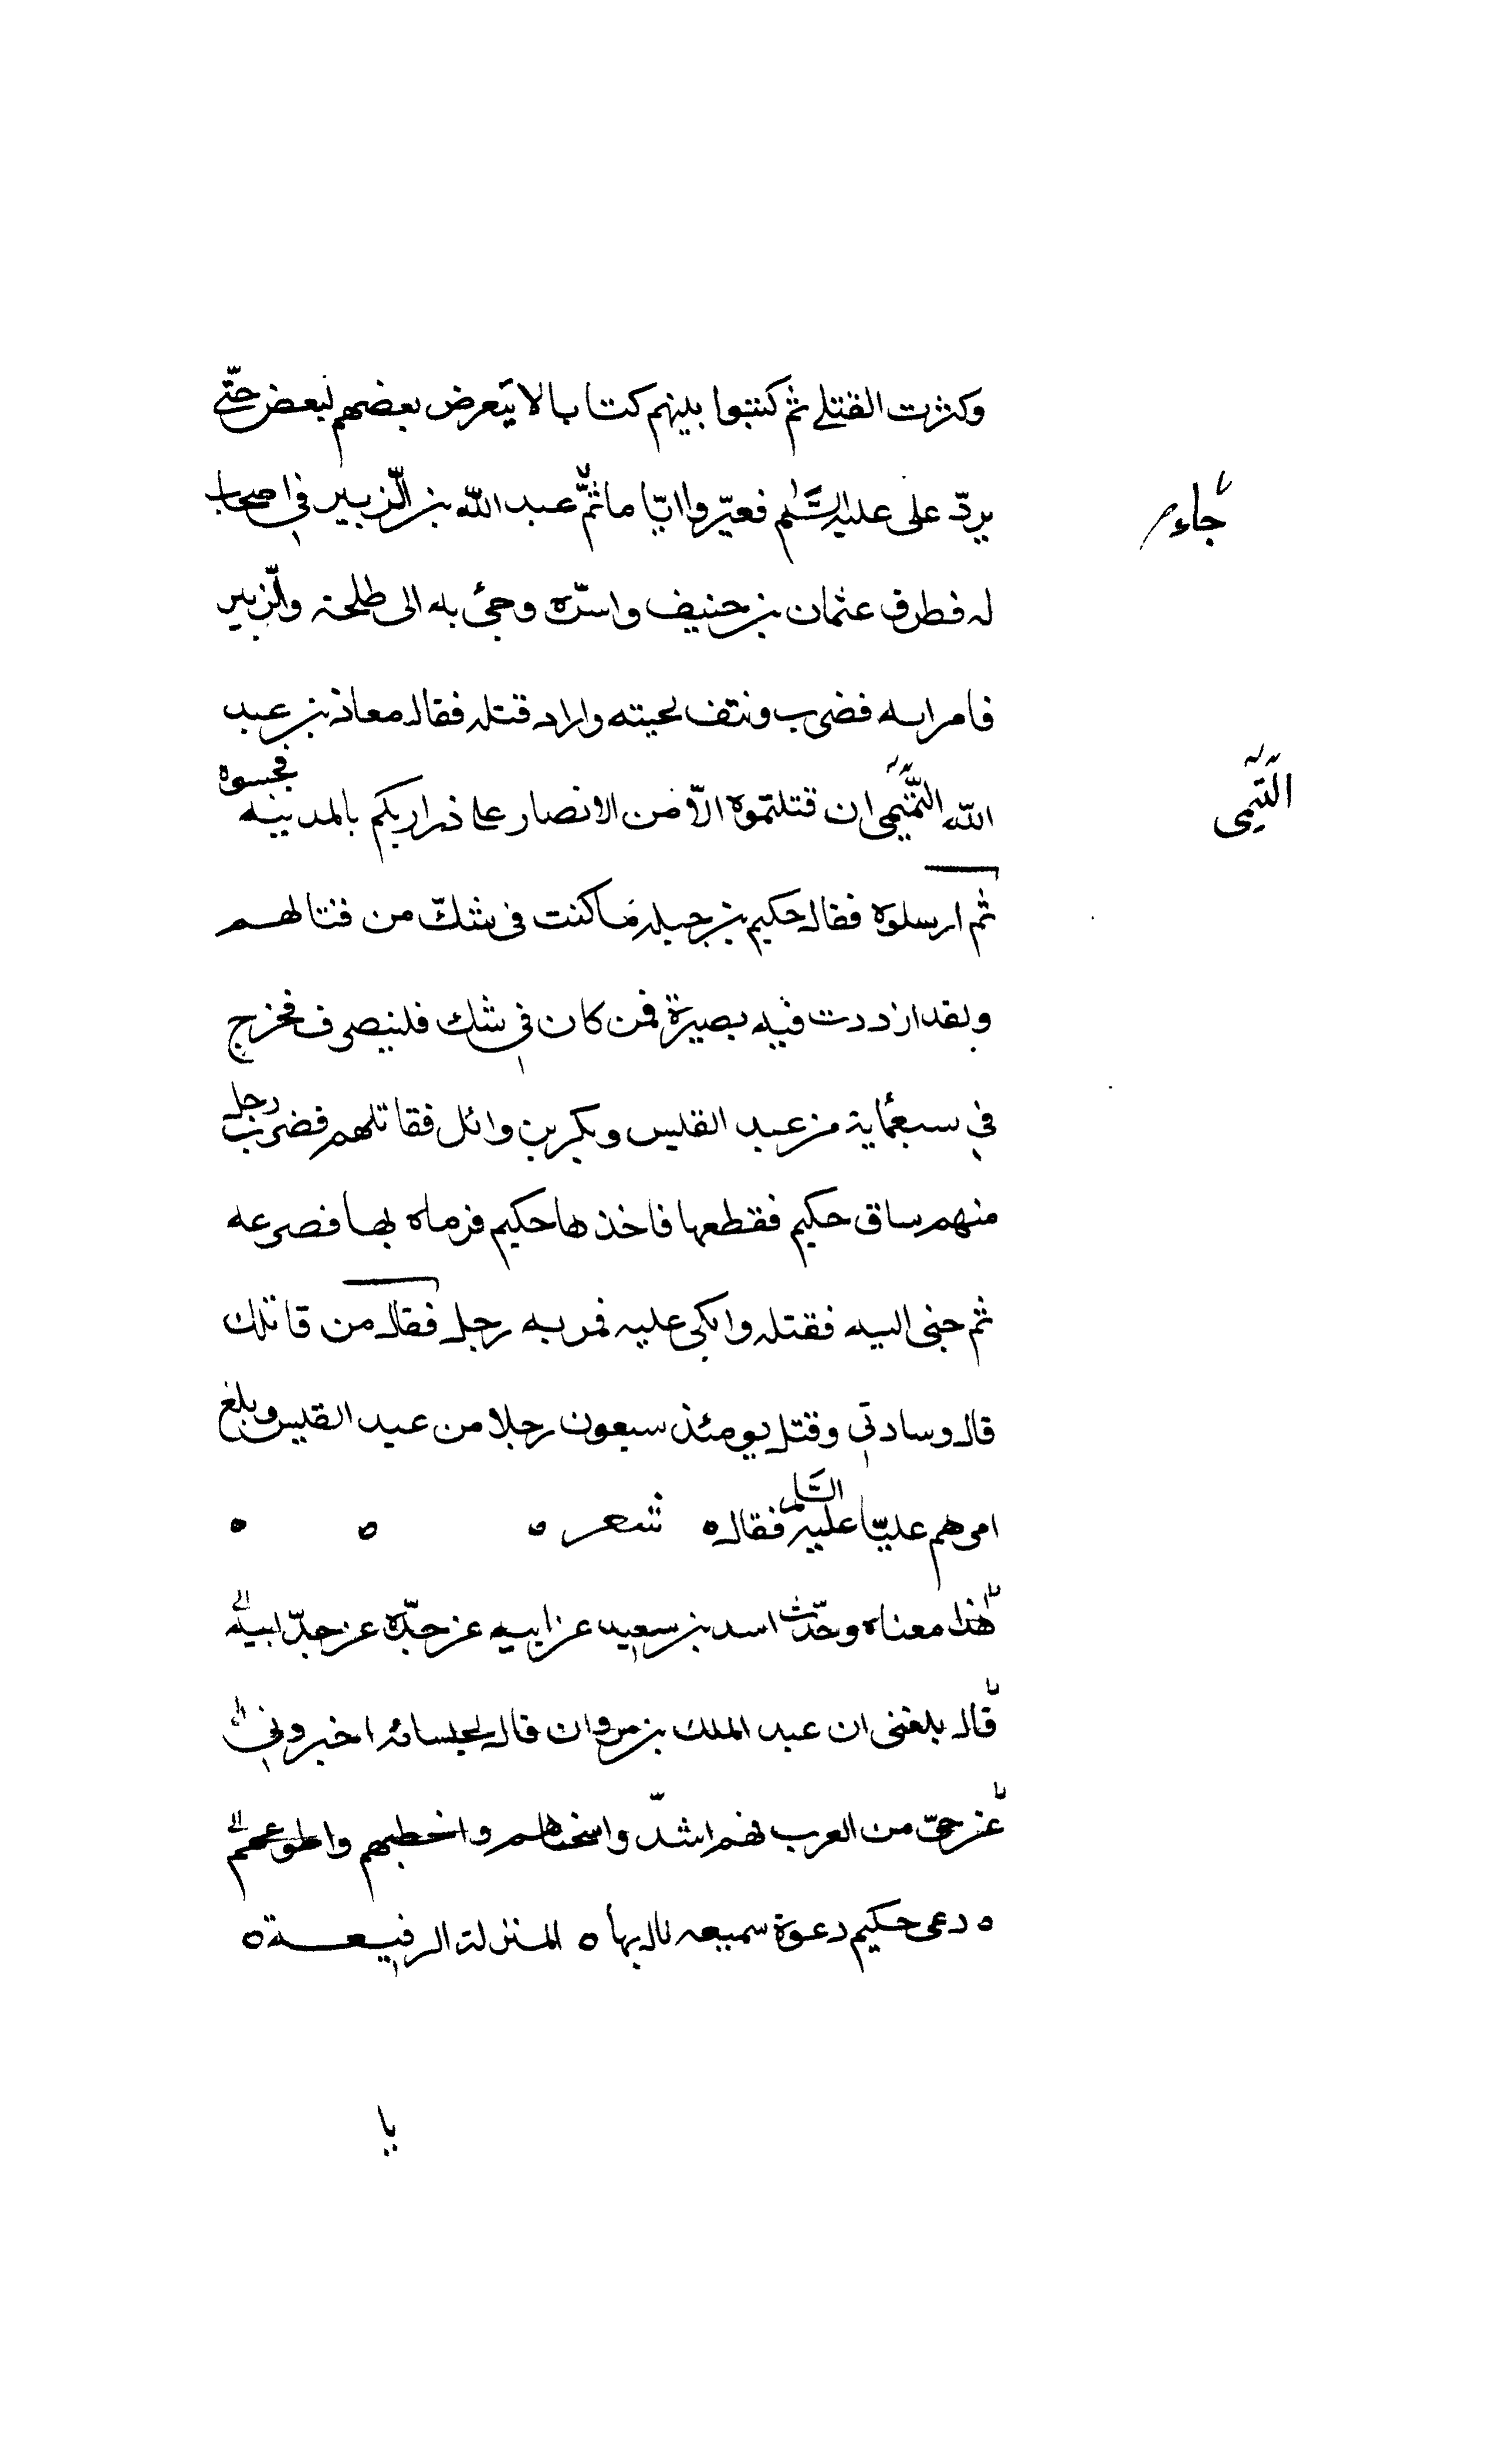 وكثرت القتلى ثم كتبوا بينهم كتابا لا يتعرض بعضهم لبعض حتّى
يردّ على عليه السّلم فعبّروا ايّاما ثمّ عبد الله بن الزبير في اصحاب
جاء
له فطرق عثمان بن حنيف واسره وجئ به الى طلحة والزبير
فامرا به فضرب ونتف لحيته واراد قتله فقال معاذ بن عبد
الله التميمى ان قتلتموه الاّ فمن الانصار على ذراريكم بالمدينة فحبسوه
التيمى
ثم ارسلوه فقال حكيم بن جبله ما كنت فى شكّ من قتالهم
ولقد ازددت فيه بصيرة فمن كان في شك فلينصرف فخرج
في سبعمائة من عبد القيس وبكر بن وائل فقاتلهم فضرب رجل
منهم ساق حكيم فقطعها فاخذها حكيم فرماه بها فصرعه
ثم حبى اليه فقتله واتكى عليه فمر به رجل فقال من قاتلك
قال وسادتي وقتل يومئذ سبعون رجلا من عبد القيس وبلغ
امرهم عليّا عليه السّلم فقال ه شعر ه ه ه
هذا معناه وحدّث اسد بن سعيد عن ابيه عن جدّه عن جدّ ابيه
قال بلغنى ان عبد الملك بن مروان قال لجلسائه اخبروني
عن حىّ من العرب فهم اشدّ واسخاهم واخطبهم واطوعهم
ه دعى حكيم دعوة سميعه نال بها ه المنزلة الرفيعة ه
يا